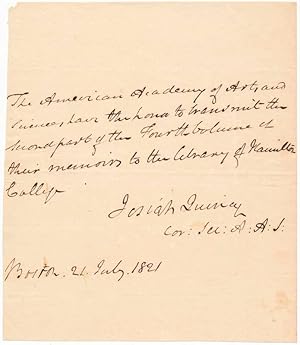 The American Academy of Arts and
Sciences have the honor to transmit the
second part of the Fourth volume of
their memoirs to the library of Hamilton
College
Josiah Quincy
Cor: Sec: A. A. S:
Boston. 21. July. 1821